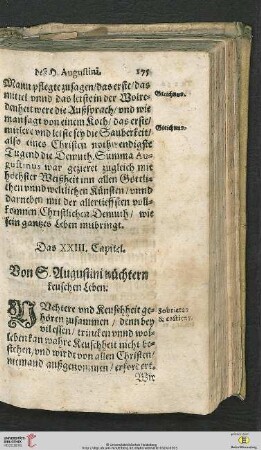 deß H. Augustini. 175
Mann pflegte zusagen / das erste / das
mittel vnnd das letste in der Wolre-
denheit were die Außsprach / vnd wie
man sagt von einem Koch / das erste /
mittere vnd letste sey die Sauberkeit /
also eines Christen nothwendigste
Tugend die Demuth. Summa Au-
gustinus war gezieret zugleich mit
höchster Weißheit inn allen Göttli-
chen vnnd weltlichen Künsten / vnnd
darneben mit der allertieffsten voll-
komnen Christlichen Demuth / wie
sein gantzes Leben mitbringt.
Gleichnus.
Gleichnus.
Das XXIII. Capitel.
Von S. Augustini nüchtern
keuschen Leben.
NÜchtere vnd Keuschheit ge-
hören zusammen / dann bey
vil essen / trincken vnnd wol-
leben kan wahre Keuschheit nicht be-
stehen / vnd wirdt von allen Christen /
niemand außgenommen / erfordert.
Sobrietas
& castitas.
Wir